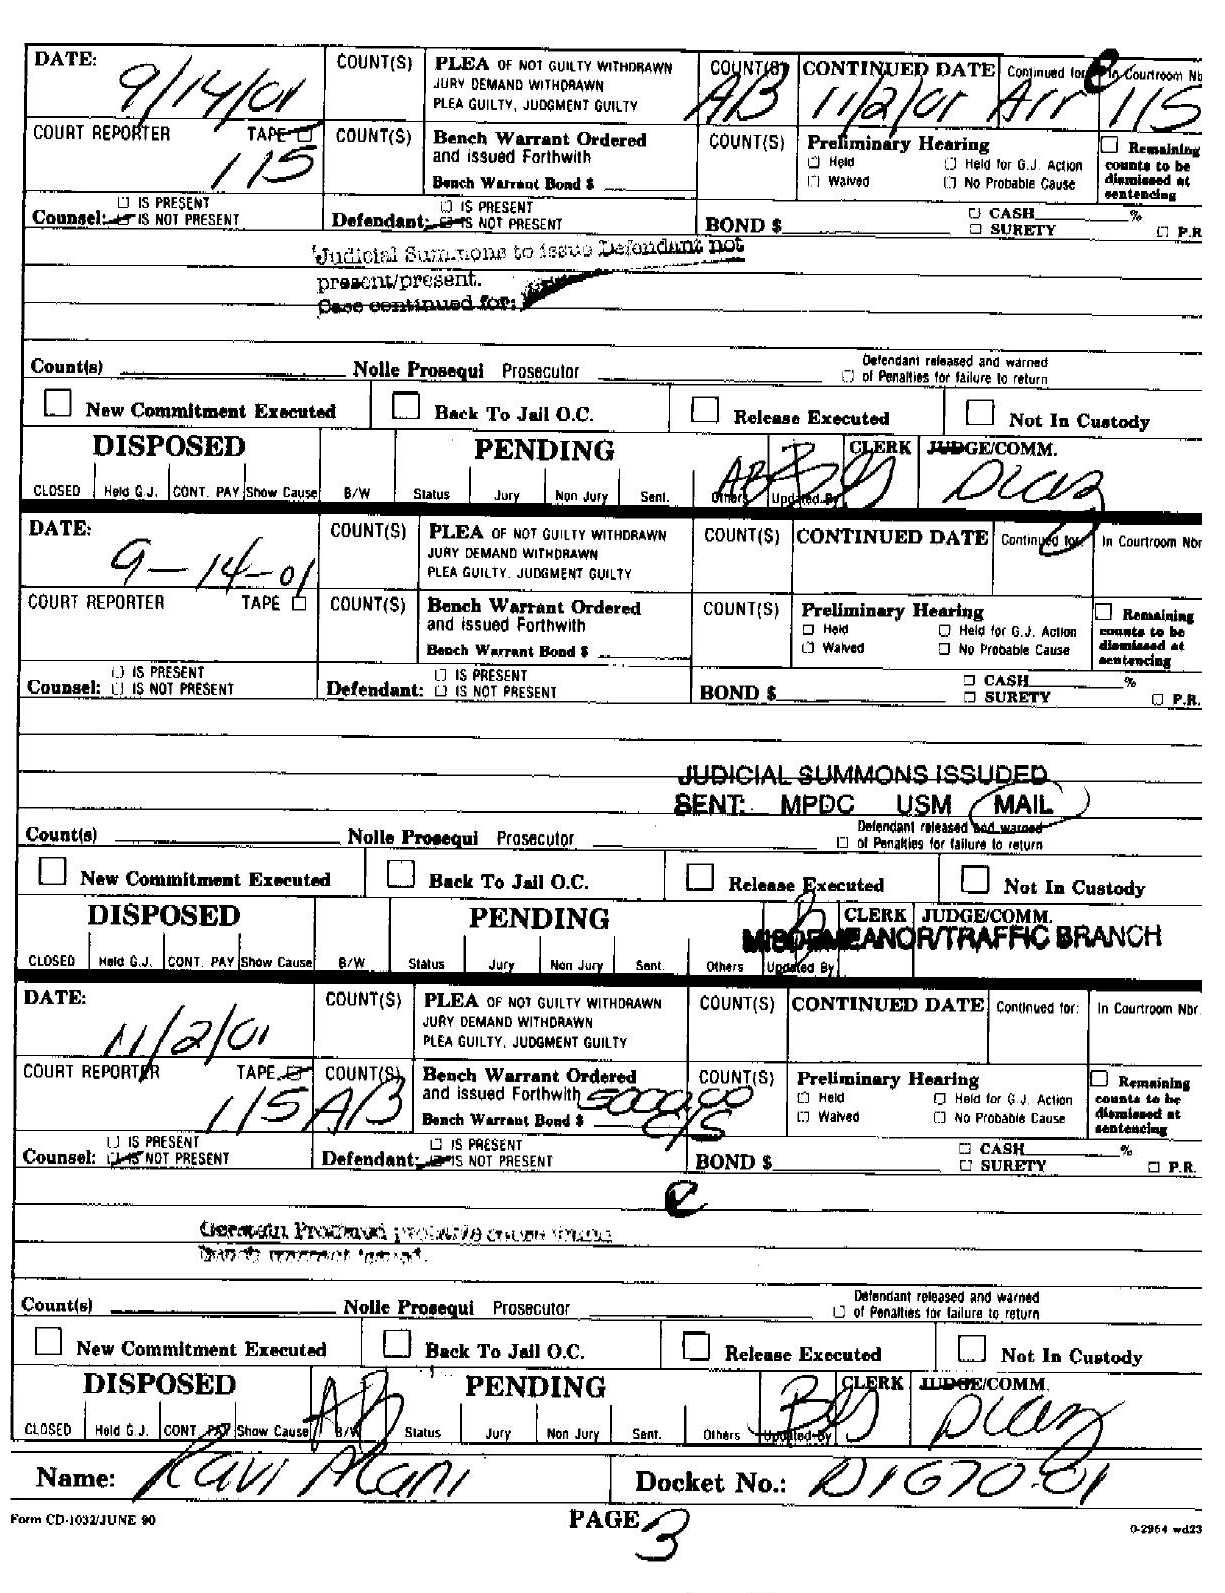 DATE: 9/14/01 COUNT(S) PLEA OF NOT GUILTY WITHDRAWN COUNT(S) CONTINUED DATE Continued for: In Courtroom Nbr
JURY DEMAND WITHDRAWN
PLEA GUILTY, JUDGMENT GUILTY A/B 11/2/01 Arr 115
COURT REPORTER TAPE COUNT(S) Bench Warrant Ordered COUNT(S) Preliminary Hearing Remaining
115 and issued Forthwith Held Held for G.J. Action counts to be
Bench Warrant Bond $ Waived No Probable Cause dismissed at
sentencing
IS PRESENT IS PRESENT CASH %
Counsel: IS NOT PRESENT Defendant: IS NOT PRESENT BOND $ SURETY P.R
Judicial Summons to issue Defendant not
present/present.
Case continued for:
Defendant released and warned
Count(s) Nolle Prosequi Prosecutor of Penalties for failure to return
New Commitment Executed Back To Jail O.C. Release Executed Not In Custody
DISPOSED PENDING CLERK JUDGE/COMM.
CLOSED Held G.J. CONT. PAY Show Cause B/W Status Jury Non Jury Sent. Others Updated By Diaz
DATE: 9-14-01 COUNT(S) PLEA OF NOT GUILTY WITHDRAWN COUNT(S) CONTINUED DATE Continued for: In Courtroom Nbr
JURY DEMAND WITHDRAWN
PLEA GUILTY, JUDGMENT GUILTY
COURT REPORTER TAPE COUNT(S) Bench Warrant Ordered COUNT(S) Preliminary Hearing Remaining
and issued Forthwith Held Held for G.J. Action counts to be
Bench Warrant Bond $ Waived No Probable Cause dismissed at
sentencing
IS PRESENT IS PRESENT CASH %
Counsel: IS NOT PRESENT Defendant: IS NOT PRESENT BOND $ SURETY P.R.
JUDICIAL SUMMONS ISSUDED
SENT: MPDC USM MAIL
Defendant released and warned
Count(s) Nolle Prosequi Prosecutor of Penalties for failure to return
New Commitment Executed Back To Jail O.C. Release Executed Not In Custody
DISPOSED PENDING CLERK JUDGE/COMM.
MISDEMEANOR/TRAFFIC BRANCH
CLOSED Held G.J. CONT. PAY Show Cause B/W Status Jury Non Jury Sent. Others Updated By
DATE: 11/2/01 COUNT(S) PLEA OF NOT GUILTY WITHDRAWN COUNT(S) CONTINUED DATE Continued for: In Courtroom Nbr
JURY DEMAND WITHDRAWN
PLEA GUILTY, JUDGMENT GUILTY
COURT REPORTER TAPE COUNT(S) Bench Warrant Ordered COUNT(S) Preliminary Hearing Remaining
115 A/B and issued Forthwith 5000.00 Held Held for G.J. Action counts to be
Bench Warrant Bond $ C/S Waived No Probable Cause dismissed at
sentencing
IS PRESENT IS PRESENT CASH %
Counsel: IS NOT PRESENT Defendant: IS NOT PRESENT BOND $ SURETY P.R.
Defendant released and warned
Count(s) Nolle Prosequi Prosecutor of Penalties for failure to return
New Commitment Executed Back To Jail O.C. Release Executed Not In Custody
DISPOSED PENDING CLERK JUDGE/COMM.
CLOSED Held G.J. CONT. PAY Show Cause B/W Status Jury Non Jury Sent. Others Updated By Diaz
Name: Ravi Docket No.: D1670-01
Form CD-1032/JUNE 90 PAGE 3 0-2964 wd23